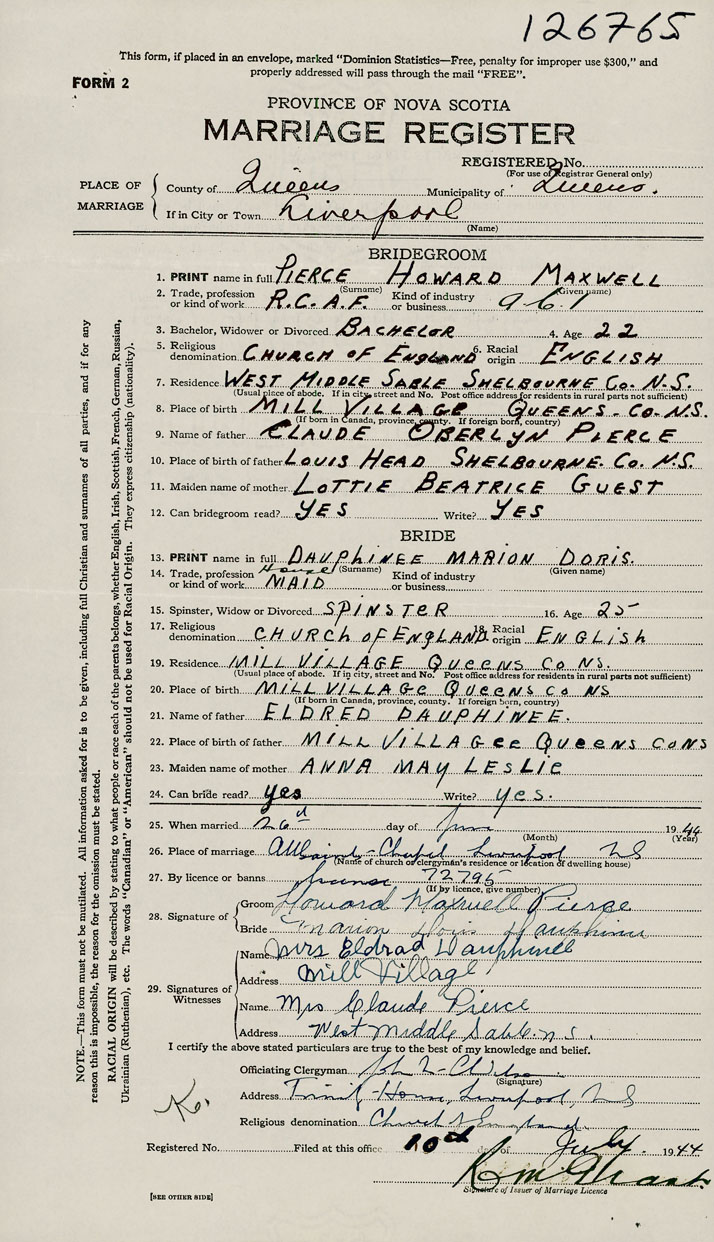 126765
This form, if placed in an envelope, marked "Dominion Statistics—Free, penalty for improper use $300," and
properly addressed will pass through the mail "FREE".
FORM 2
PROVINCE OF NOVA SCOTIA
MARRIAGE REGISTER
REGISTERED No.
(For use of Registrar General only)
PLACE OF MARRIAGE
County of Queens Municipality of Queens.
If in City or Town Liverpool
(Name)
BRIDEGROOM
1. PRINT name in full PIERCE HOWARD MAXWELL
(Surname) (Given name)
2. Trade, profession or kind of work R.C.A.F. Kind of industry or business 961
3. Bachelor, Widower or Divorced BACHELOR 4. Age 22
5. Religious denomination CHURCH OF ENGLAND 6. Racial origin ENGLISH
7. Residence WEST MIDDLE SABLE SHELBOURNE Co. N.S.
(Usual place of abode. If in city, street and No. Post office address for residents in rural parts not sufficient)
8. Place of birth MILL VILLAGE QUEENS. CO. N.S.
(If born in Canada, province, county. If foreign born, country)
9. Name of father CLAUDE OBERLYN PIERCE
10. Place of birth of father LOUIS HEAD SHELBOURNE. Co. N.S.
11. Maiden name of mother LOTTIE BEATRICE GUEST
12. Can bridegroom read? YES Write? YES
BRIDE
13. PRINT name in full DAUPHINEE MARION DORIS.
(Surname) (Given name)
14. Trade, profession or kind of work House MAID Kind of industry or business
15. Spinster, Widow or Divorced SPINSTER 16. Age 25
17. Religious denomination CHURCH OF ENGLAND 18. Racial origin ENGLISH
19. Residence MILL VILLAGE QUEENS CO NS.
(Usual place of abode. If in city, street and No. Post office address for residents in rural parts not sufficient)
20. Place of birth MILL VILLAGE QUEENS CO NS
(If born in Canada, province, county. If foreign born, country)
21. Name of father ELDRED DAUPHINEE.
22. Place of birth of father MILL VILLAGEE QUEENS CO NS
23. Maiden name of mother ANNA MAY LESLIE
24. Can bride read? yes Write? yes.
25. When married 26th day of June 1944
(Month) (Year)
26. Place of marriage All Saints Chapel Liverpool NS
(Name of church or clergyman's residence or location of dwelling house)
27. By licence or banns license 72795
(If by licence, give number)
28. Signature of
Groom Howard Maxwell Pierce
Bride Marion Doris Dauphinee
29. Signatures of Witnesses
Name Mrs Eldrad Dauphinee
Address Mill Village
Name Mrs Claude Pierce
Address West Middle Sable. n.s.
I certify the above stated particulars are true to the best of my knowledge and belief.
Officiating Clergyman
(Signature)
Address Trinity House, Liverpool, NS
Religious denomination Church of England
Registered No. Filed at this office 10th day of July 1944
Signature of Issuer of Marriage Licence
[SEE OTHER SIDE]
NOTE.—This form must not be mutilated. All information asked for is to be given, including full Christian and surnames of all parties, and if for any
reason this is impossible, the reason for the omission must be stated.
RACIAL ORIGIN will be described by stating to what people or race each of the parents belongs, whether English, Irish, Scottish, French, German, Russian,
Ukrainian (Ruthenian), etc. The words "Canadian" or "American" should not be used for Racial Origin. They express citizenship (nationality).